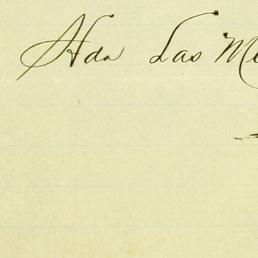 Hda Las M